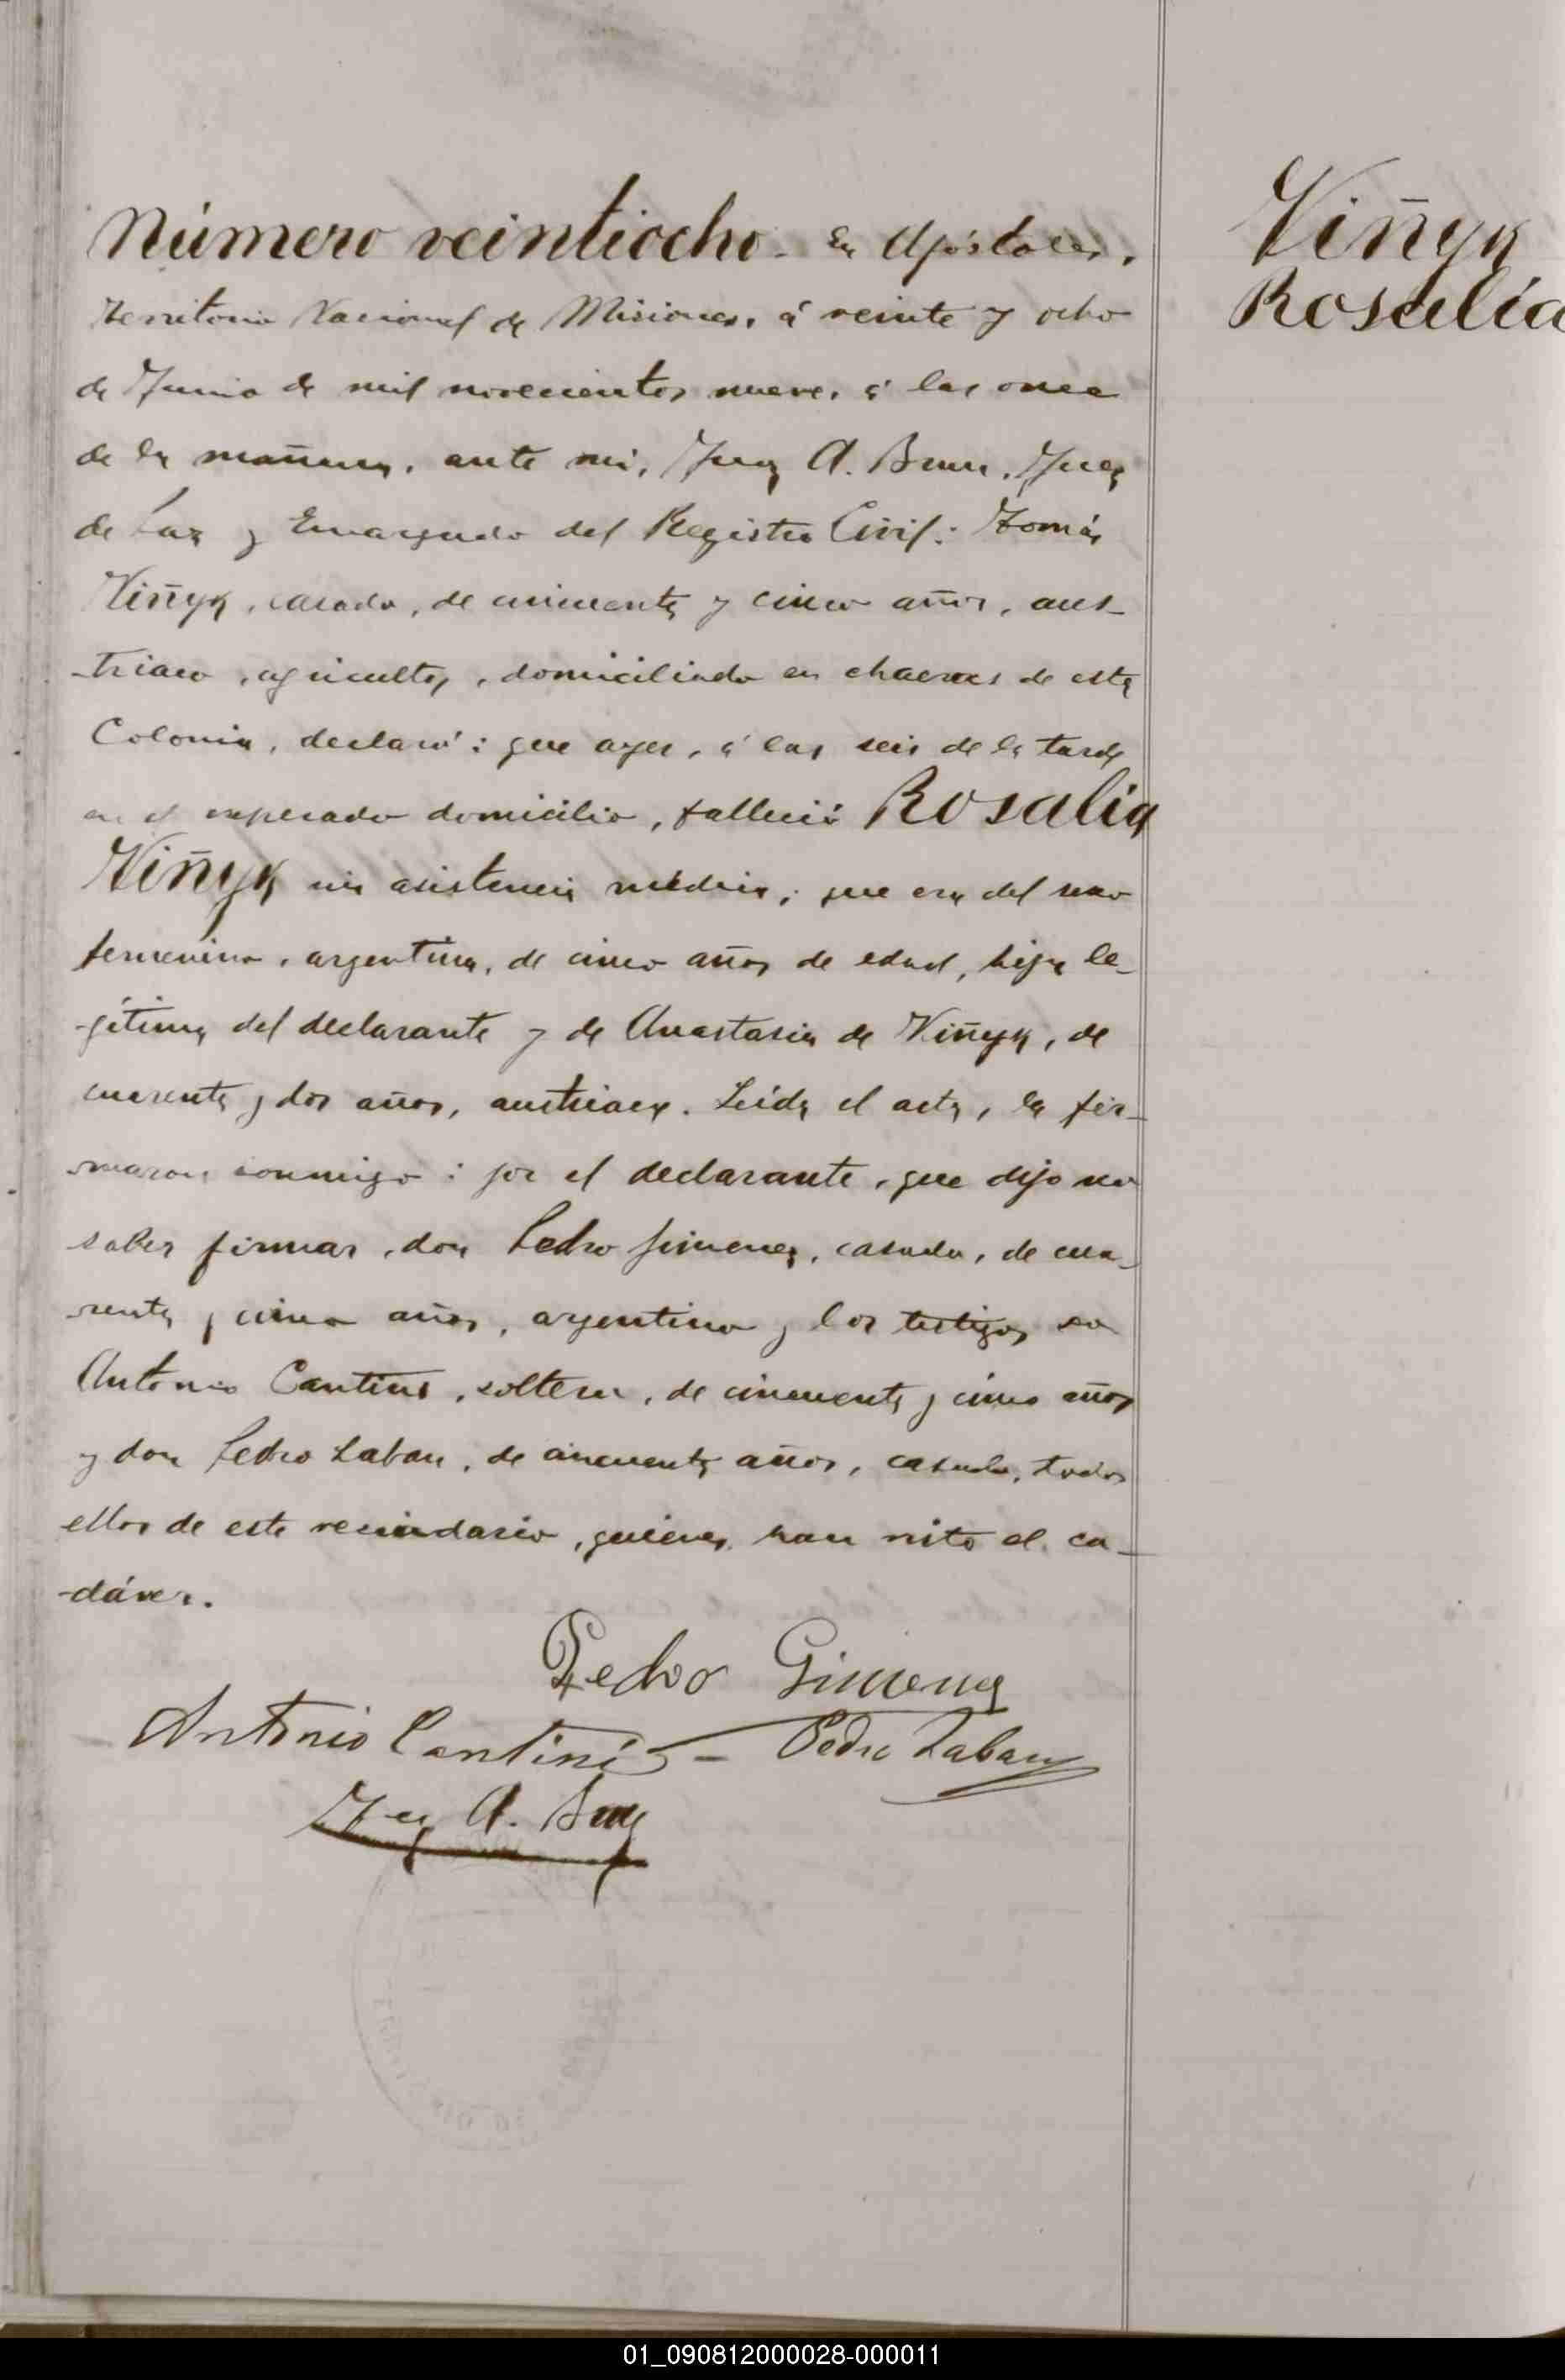 Número veintiocho. En Apóstoles,
Territorio Nacional de Misiones, á veinte y ocho
de Junio de mil novecientos nueve, á las once
de la mañana, ante mi, A. Juez
de Paz y Encargado del Registro Civil: Tomás
Viñyk, casado, de cincuenta y cinco años, aus-
-triaco, agricultor, domiciliado en chacras de esta
Colonia, declaró: que ayer, á las seis de la tarde
en el expresado domicilio, falleció Rosalía
Viñyk sin asistencia médica; que era del sexo
femenino, argentina, de cinco años de edad, hija le-
-gítima del declarante y de Anastasia de Viñyk, de
cuarenta y dos años, austriaca. Leída el acta, la fir-
-maron conmigo: por el declarante, que dijo no
saber firmar, don Pedro Jimenez, casado, de cua-
-renta y cinco años, argentino y los testigos don
Antonio Cantini, soltero, de cincuenta y cinco años
y don Pedro Laban, de cincuenta años, casado, todos
ellos de este vecindario, quienes han visto el ca-
-dáver.
Pedro Gimenez
Antonio Cantini - Pedro Laban
A.
Viñyk
Rosalía
01_090812000028-000011